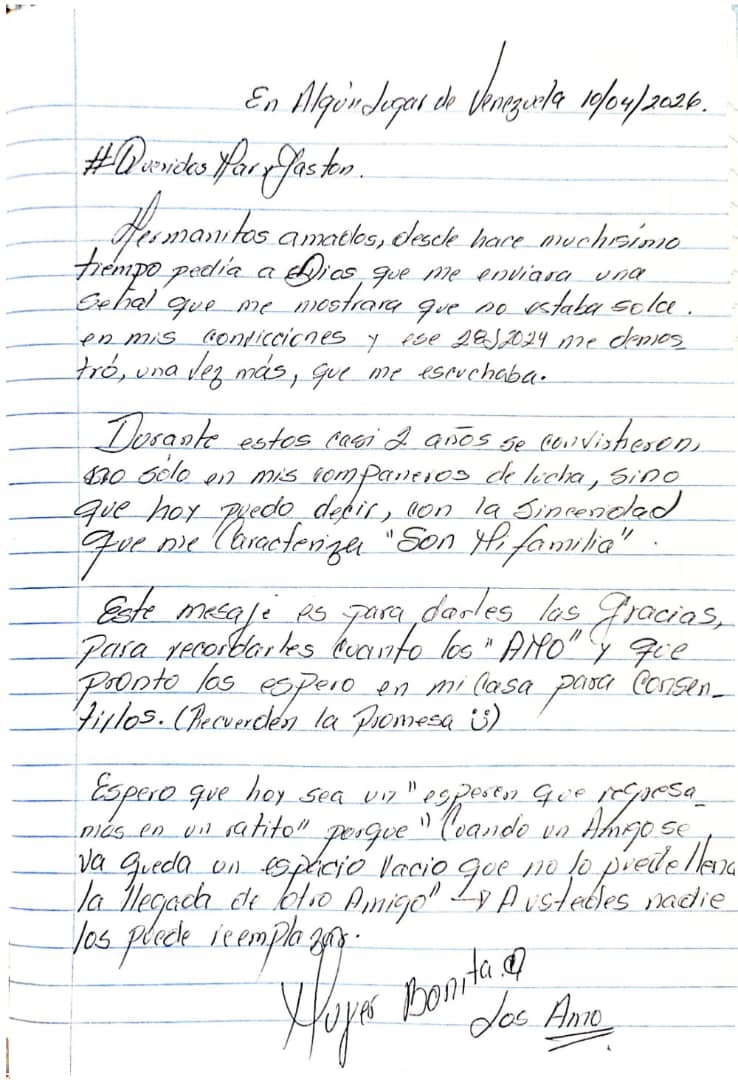 En Algún Lugar de Venezuela 10/04/2026.
#Queridos Mar y Gaston.
Hermanitos amados, desde hace muchisímo
tiempo pedía a Dios que me enviara una
señal que me mostrara que no estaba sola.
en mis convicciones y ese 28J2024 me demos
tró, una vez más, que me escuchaba.
Durante estos casi 2 años se convirtieron,
no sólo en mis compañeros de lucha, sino
que hoy puedo decir, con la Sinceridad
que me Caracteriza "Son Mi familia".
Este mesaje es para darles las Gracias,
para recordarles cuanto los "AMO" y que
pronto los espero en mi casa para Consen-
tirlos. (Recuerden la Promesa ü)
Espero que hoy sea un "esperen que regresa
mos en un ratito" porque "Cuando un Amigo se
va queda un espacio Vacio que no lo puede llena
la llegada de otro Amigo" → A ustedes nadie
los puede reemplazar.
Mujer Bonita.
Los Amo